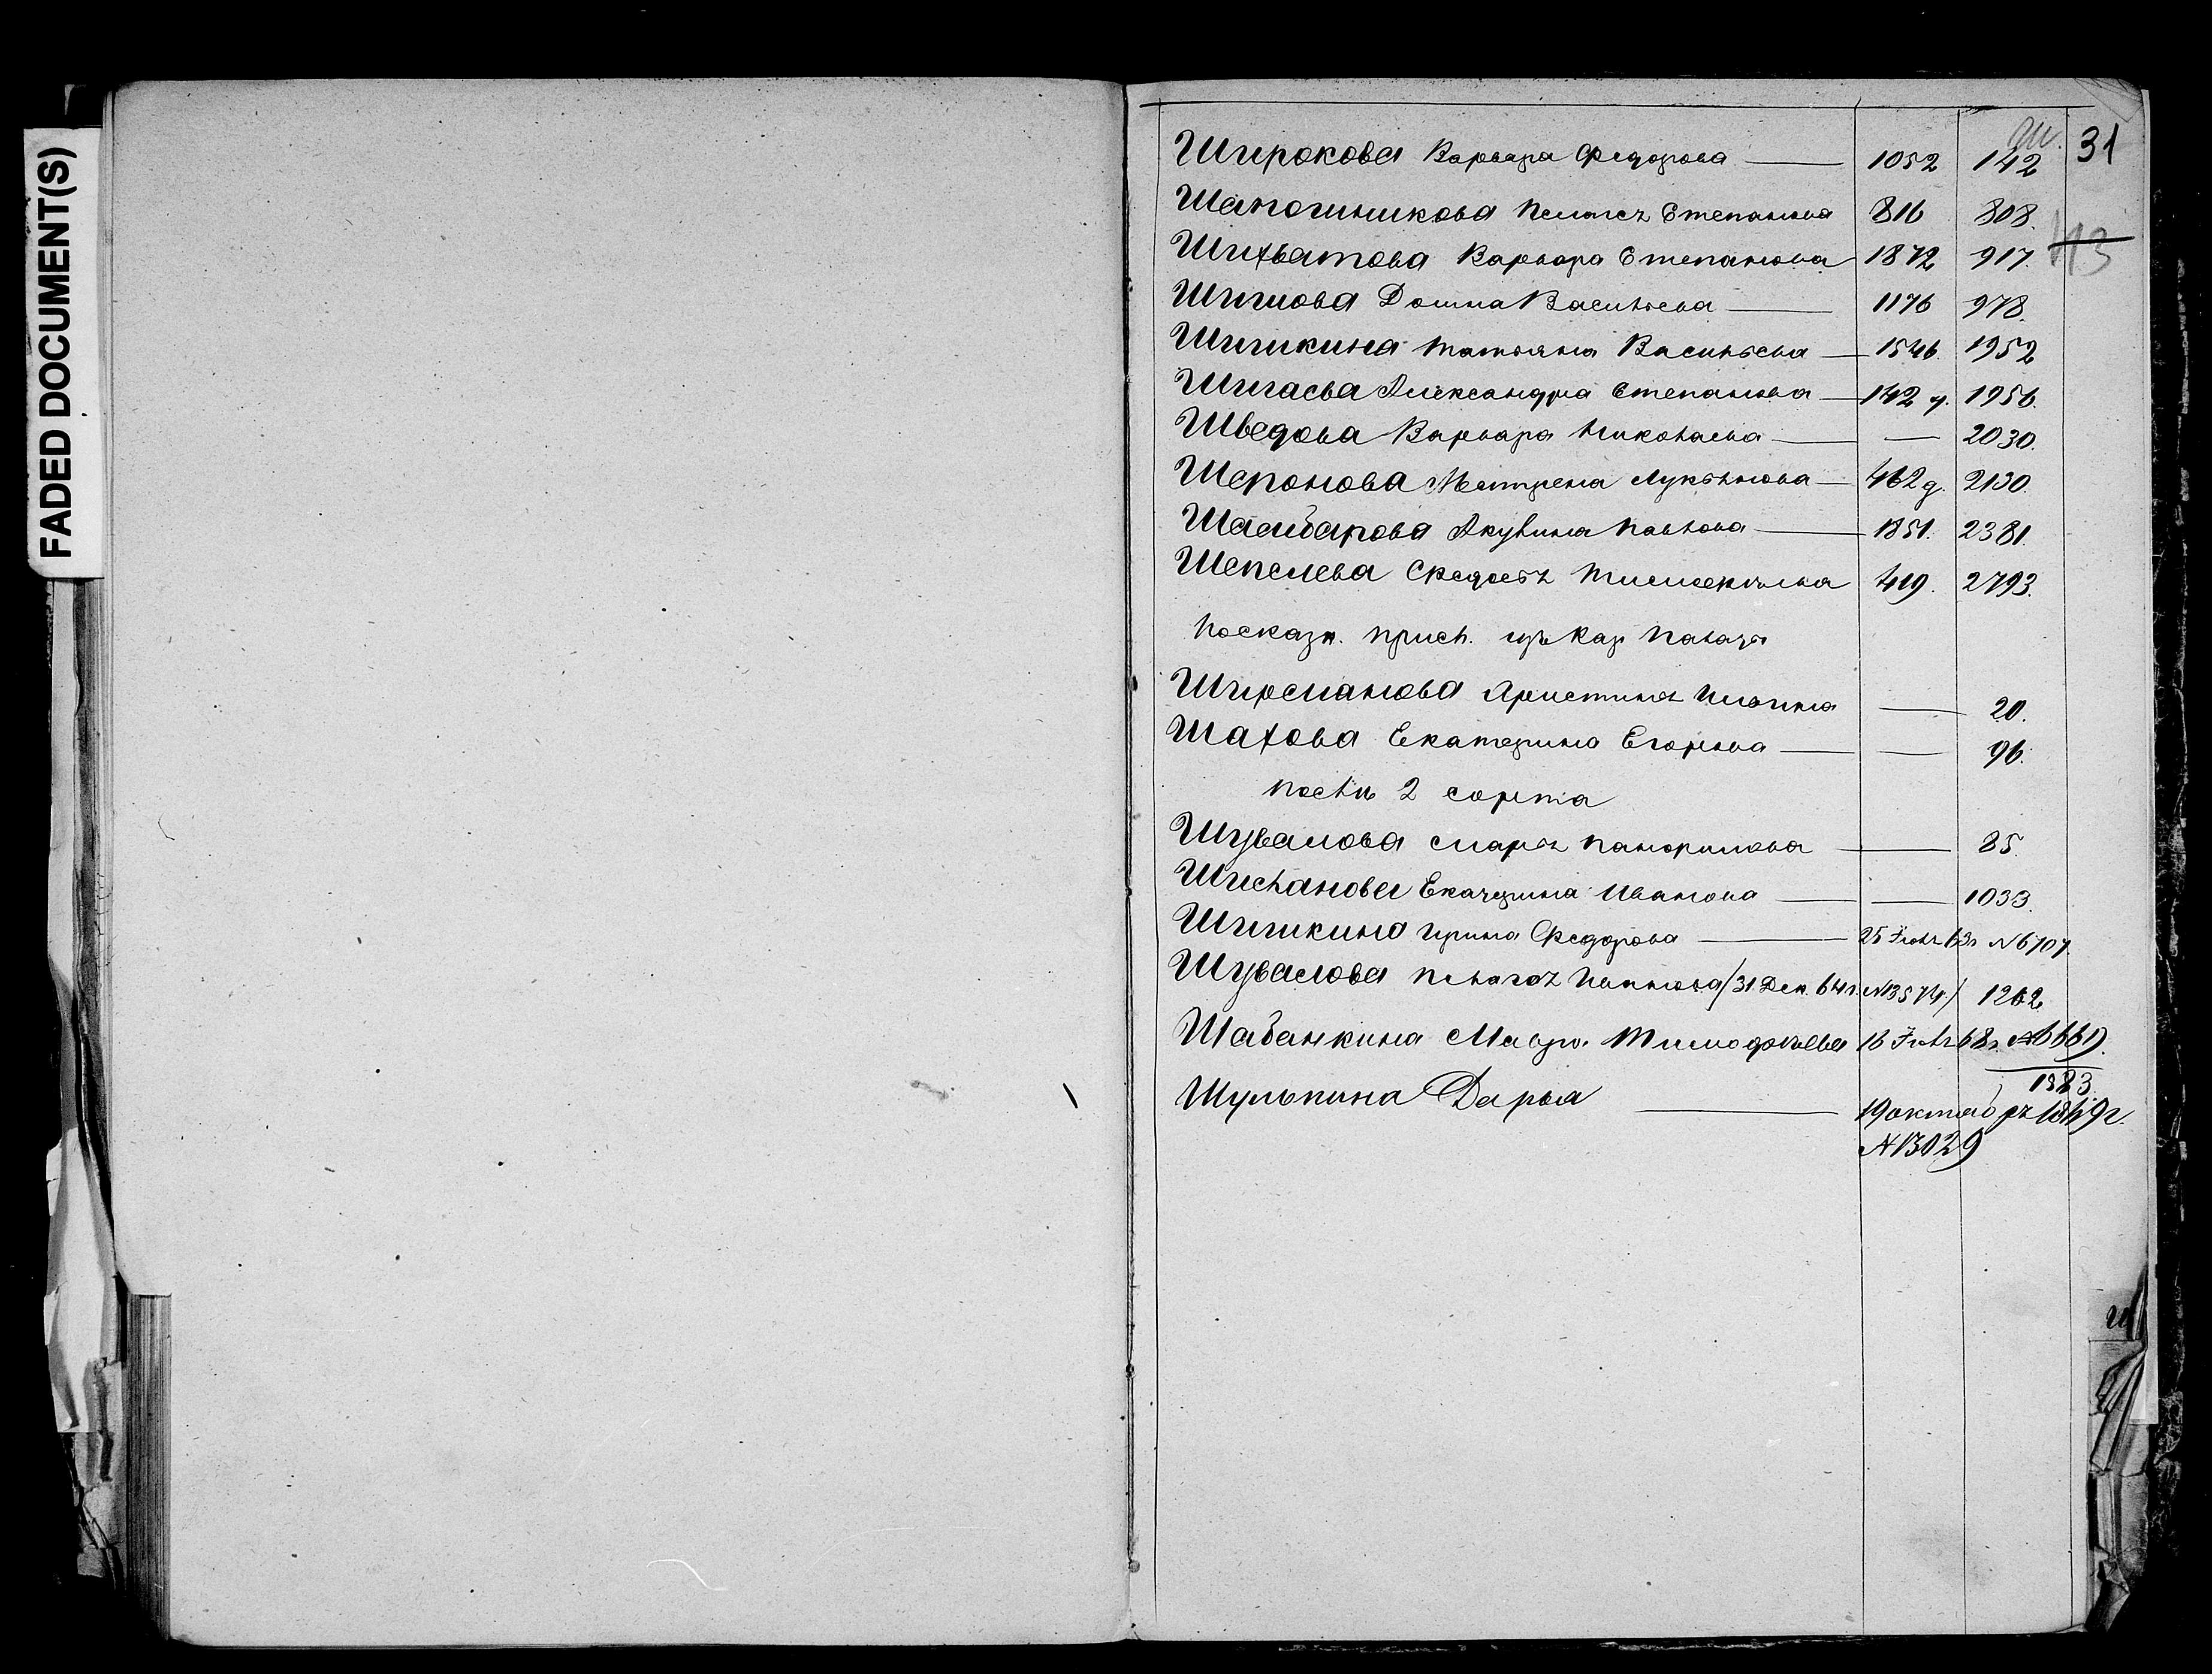 FADED DOCUMENT(S)
Ш. 31
Широкова Варвара Федорова — 1052 142
Шапошникова Пелагея Степанова 816 808.
43
Шихватова Варвара Степанова 1872 917.
Шишова Домна Васильева — 1176 978.
Шишкина Татьяна Васильева — 1546. 1952
Шигаева Александра Степанова — 142 1956.
Шведова Варвара Николаева — — 2030.
Матрена Лукьянова — 462 д. 2130.
Акулина Павлова — 1851. 2381.
Шепелева Федосья 419. 2793.
Палаты
Ильина — 20.
Шахова Екатерина Егорова — — 96.
2 сорта
Шувалова Марья — 85.
Екатерина Иванова — — 1033.
Шишкина Ирина Федорова — 25 63г N 6707.
Шувалова Пелагея /31 Дек. 64г. N13574./ 1262
Шабанкина Мавра Тимофѣева 16 68г. N6661).
1383.
Шульпина Дарья — 19 октября 1879г.
N13029